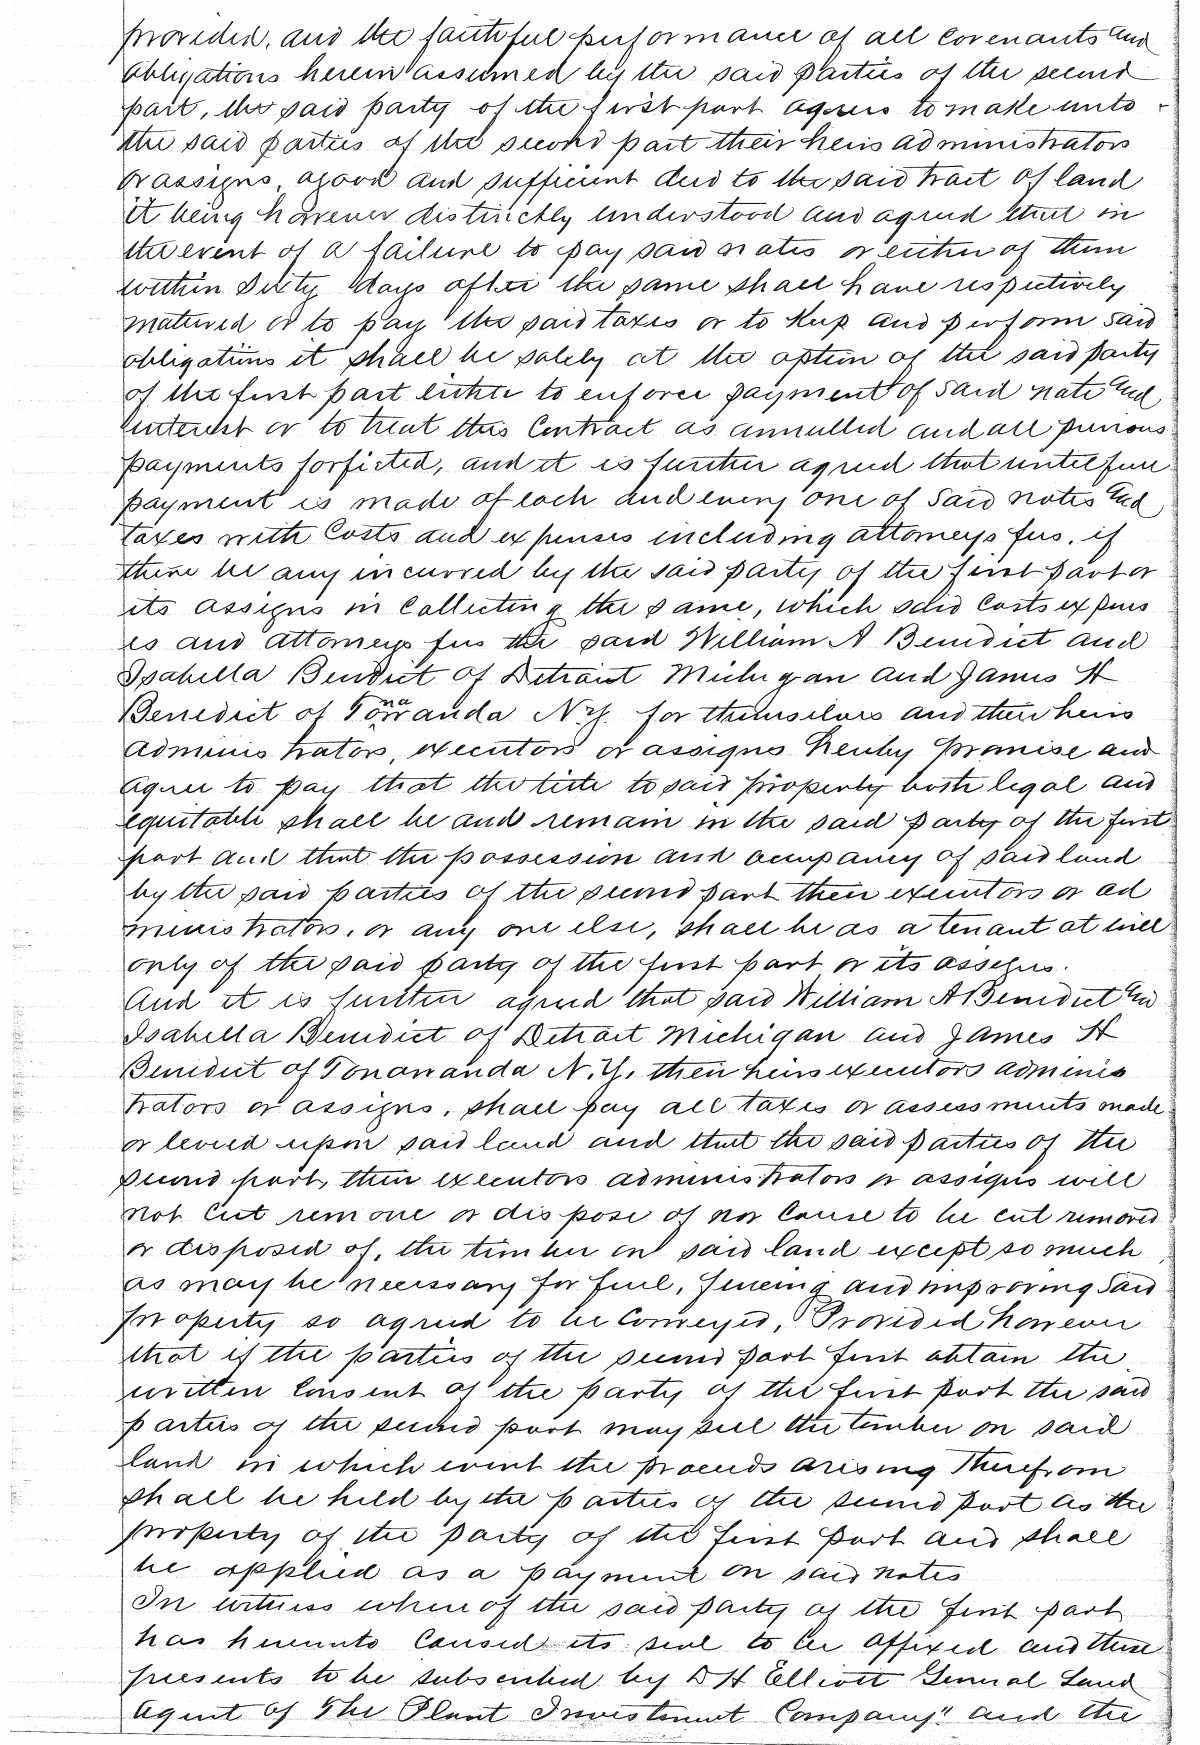 provided, and the faithful performance of all covenants and
obligations herein assumed by the said parties of the second
part, the said party of the first part agrees to make unto
the said parties of the second part their heirs administrators
or assigns, a good and sufficient deed to the said tract of land
it being however distinctly understood and agreed that in
the event of a failure to pay said notes or either of them
within sixty days after the same shall have respectively
matured or to pay the said taxes or to keep and perform said
obligations it shall be solely at the option of the said party
of the first part either to enforce payment of said note and
interest or to treat this Contract as annulled and all previous
payments forficted, and it is further agreed that until full
payment is made of each and every one of said notes and
taxes with Costs and expenses including attorneys fees, if
there be any incurred by the said party of the first part or
its assigns in Collecting the same, which said Costs expens
es and attorneys fees the said William A Benedict and
Isabella Benedict of Detroit Michigan and James H
Benedict of Tonawanda N.Y. for themselves and their heirs
administrators, executors or assigns hereby promise and
agree to pay that the title to said property both legal and
equitable shall be and remain in the said party of the first
part and that the possession and occupancy of said land
by the said parties of the second part their executors or ad
ministrators, or any one else, shall be as a tenant at will
only of the said party of the first part or its assigns.
And it is further agreed that said William A Benedict and
Isabella Benedict of Detroit Michigan and James H
Benedict of Tonawanda N.Y. their heirs executors adminis
trators or assigns, shall pay all taxes or assessments made
or levied upon said land and that the said parties of the
second part, their executors administrators or assigns will
not Cut remove or dispose of nor Cause to be cut removed
or disposed of, the timber on said land except so much
as may be necessary for fuel, fencing and improving said
property so agreed to be Conveyed, Provided however
that if the parties of the second part first obtain the
written Consent of the party of the first part the said
parties of the second part may sell the timber on said
land in which event the proceeds arising therefrom
shall be held by the parties of the second part as the
property of the party of the first part and shall
be applied as a payment on said notes
In witness whereof the said party of the first part
has hereunto Caused its seal to be affixed and these
presents to be subscribed by D H Elliott General Land
Agent of The Plant Investment Company" and the